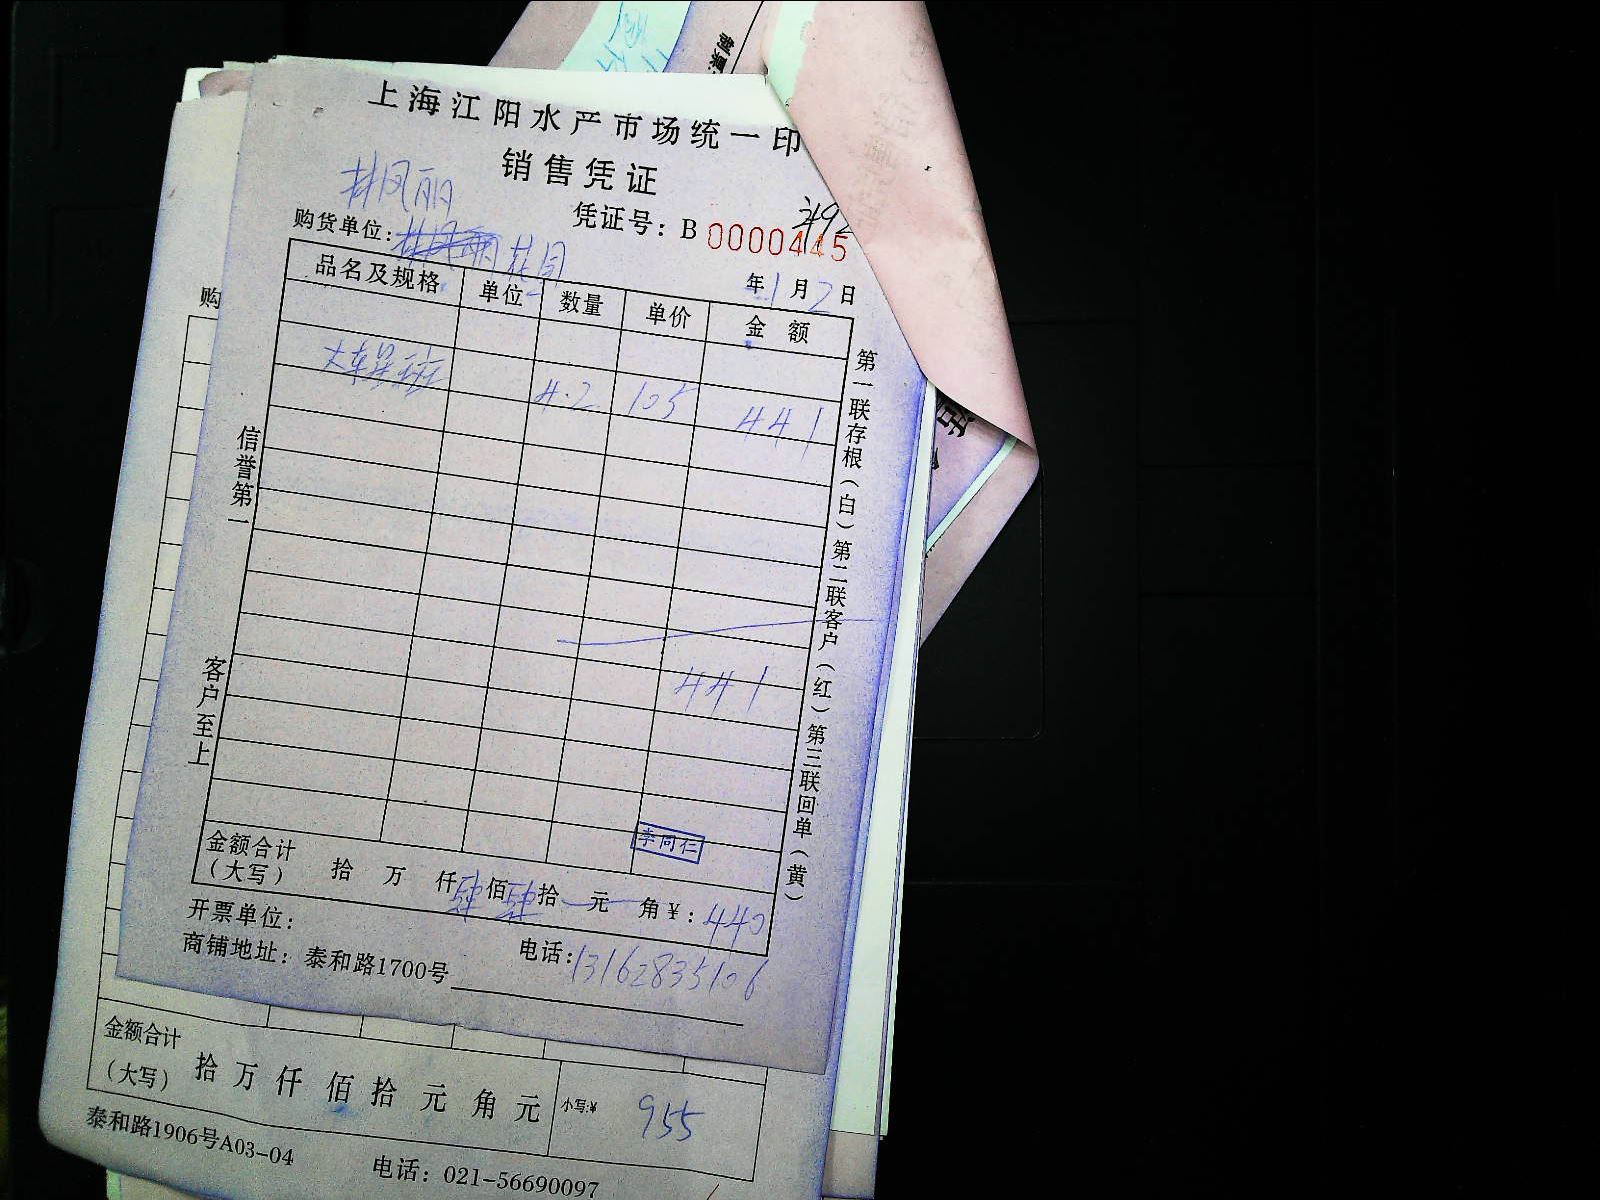 制票
上海江阳水产市场统一印
销售凭证
林凤丽
购货单位: 花园
凭证号: B 0000445
年 1 月 2 日
品名及规格 单位 数量 单价 金额
4.2 105 441
441
信誉第一
客户至上
第一联存根(白)第二联客户(红)第三联回单(黄)
李同仁
金额合计(大写) 拾 万 仟 肆佰 肆拾 元 角 ¥: 440
开票单位:
电话: 13162835106
商铺地址: 泰和路1700号
购
金额合计(大写) 拾 万 仟 佰 拾 元 角 元 小写:¥ 955
泰和路1906号A03-04
电话: 021-56690097